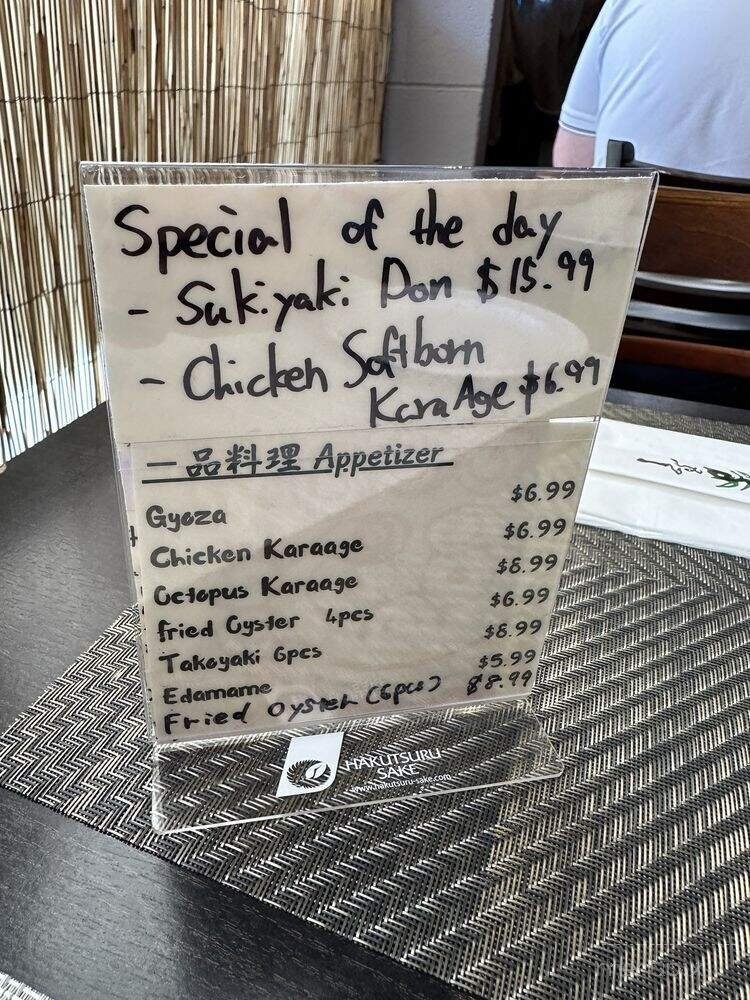 Special of the day
- Sukiyaki Don $15.99
- Chicken Softborn
KaraAge $6.99
一品料理 Appetizer
Gyoza $6.99
Chicken Karaage $6.99
Octopus Karaage $8.99
Fried Oyster 4pcs $6.99
Takoyaki 6pcs $8.99
Edamame $5.99
Fried Oyster (6pcs) $8.99
HAKUTSURU
SAKE
www.hakutsuru-sake.com